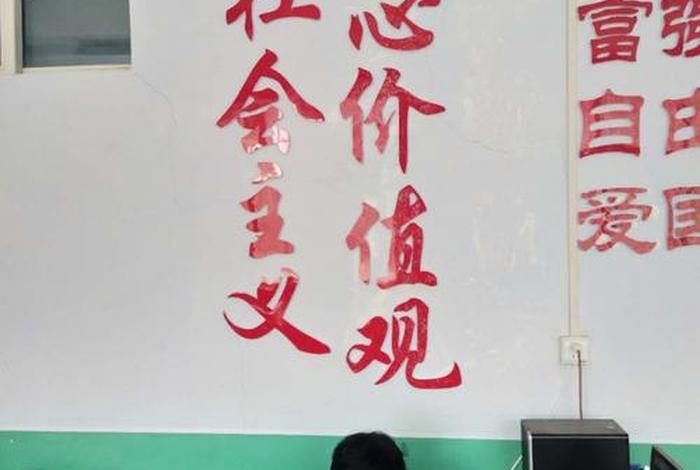 社会主义
心价值观
富强
自由
爱国